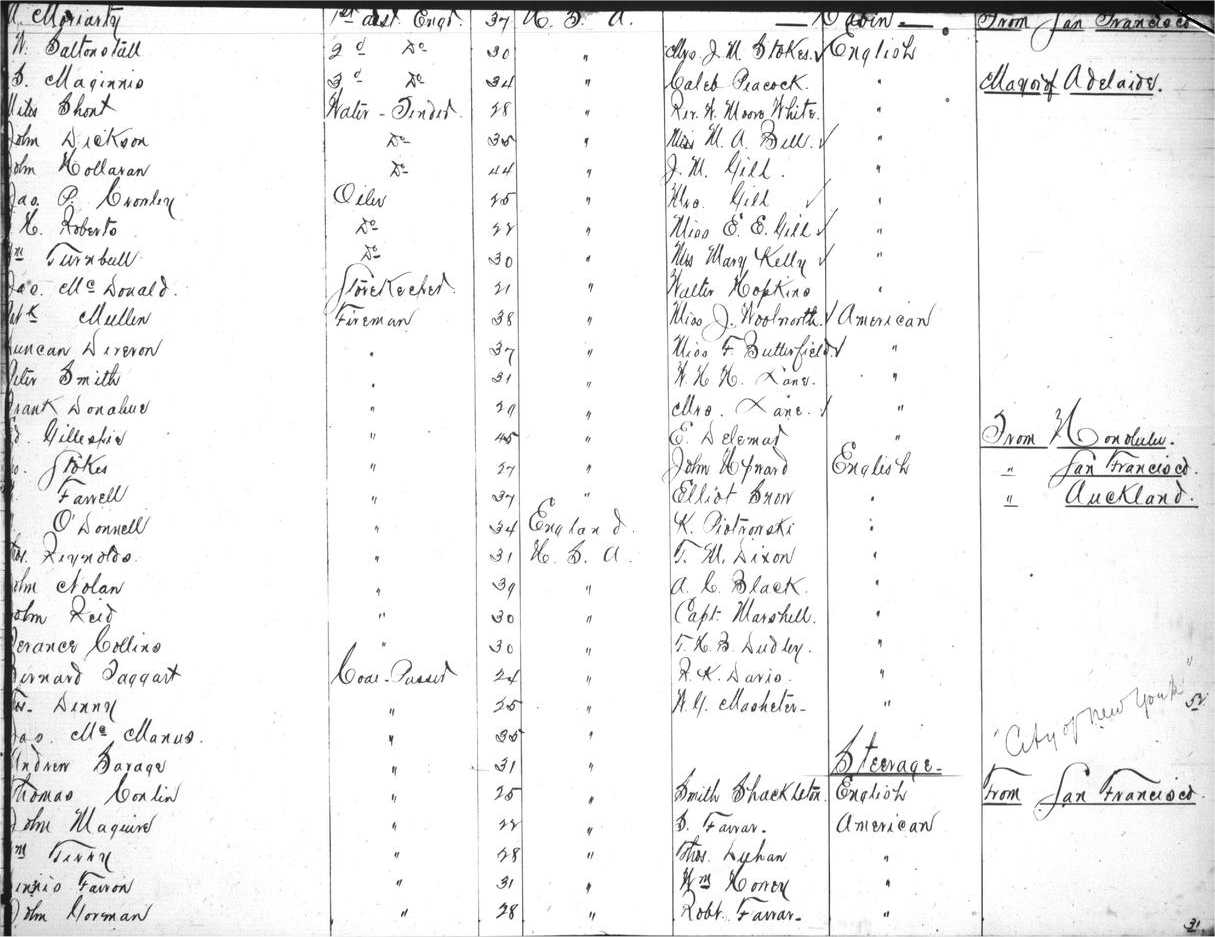 Moriarty 1st asst Engr. 37 U. S. A. — Cabin — From San Francisco
W. Saltonstall 2d Do 30 " Mrs J. M. Stokes. ✓ English
S. Maginnis 3d Do 34 " Caleb Peacock. " Mayor of Adelaide.
Miles Short Water-Tender 28 " Rev. W. Moore White. "
John Dickson Do 35 " Miss M. A. Bell. ✓ "
John Hollaran Do 44 " J. M. Gill. "
Jas. P. Cronley Oiler 25 " Mrs. Gill ✓ "
H. Roberts. Do 22 " Miss E. E. Gill ✓ "
Wm Turnbull Do 30 " Miss Mary Kelly ✓ "
Jas. McDonald. Storekeeper. 21 " Walter Hopkins "
Mullen Fireman 38 " Miss J. Woolnorth. ✓ American
Duncan 37 " Miss F. Butterfield. ✓ "
Peter Smith " 31 " W. H. H. Lane. "
Frank Donahue " 29 " Mrs. Lane. ✓ "
Ed. Gillespie " 45 " E. " From Honolulu.
Stokes " 27 " John English " San Francisco.
Farrell " 37 " Elliot Snow " " Auckland.
O'Donnell " 34 England. K. Piotronski "
Thos. Reynolds. " 31 U. S. A. T. M. Dixon "
John Nolan " 39 " A. C. Black. "
John Reid " 30 " Capt. Marshell. "
Terance Collins " 30 " T. H. B. Dudley. "
Bernard Taggart Coal-Passer 24 " R. K. Davis. "
Denny " 25 " W. G. Masheter- "
Jas. McManus. " 35 " "City of New York" 52
Andrew Savage " 31 " Steerage.
Thomas Conlin " 25 " Smith Shackleton. English From San Francisco.
John Maguire " 22 " S. Farrar. American
Wm Terry " 28 " Thos. Lyhan "
Farron " 31 " Wm "
John Gorman " 28 " Robt. Farrar- "
31